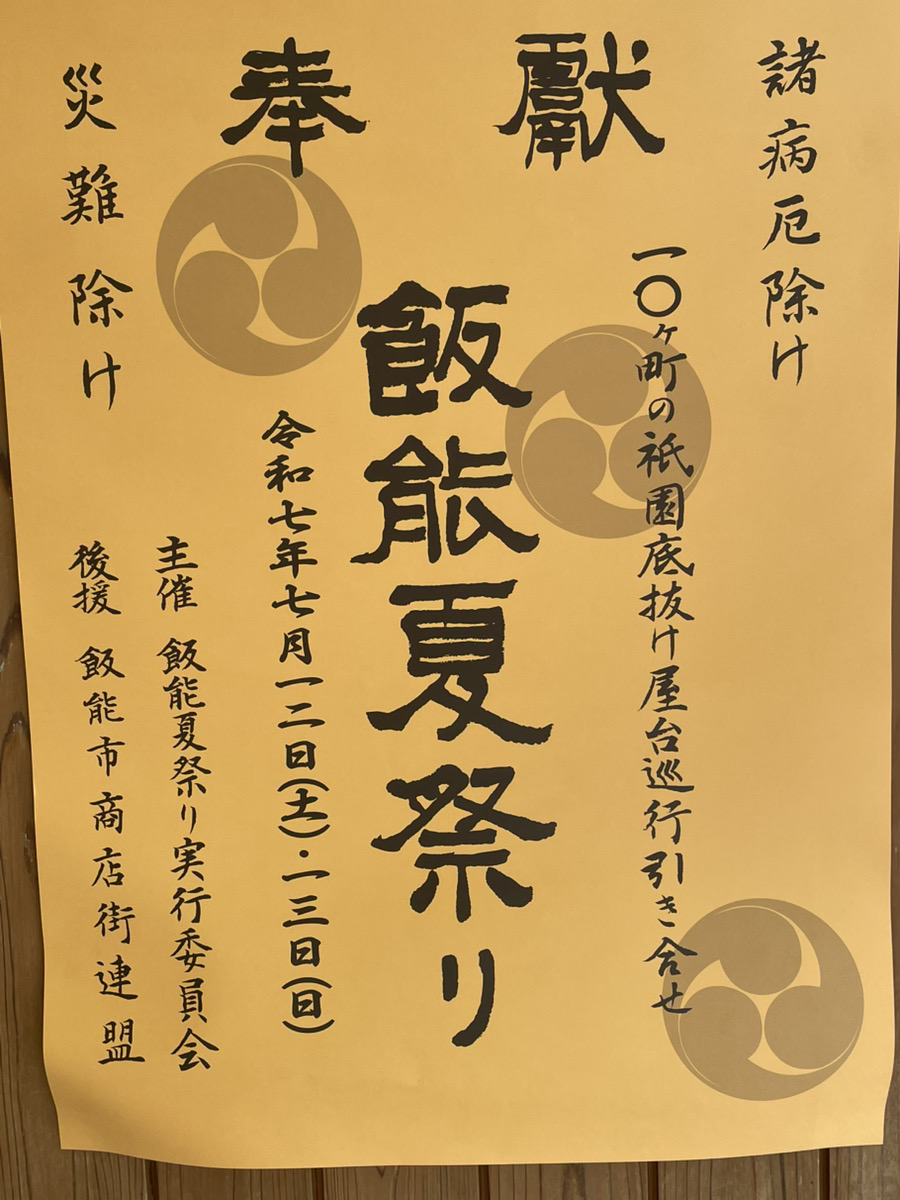 奉獻
諸病厄除け
一〇ヶ町の祇園底抜け屋台巡行引き合せ
飯能夏祭り
令和七年七月一二日(土)・一三日(日)
主催 飯能夏祭り実行委員会
後援 飯能市商店街連盟
災難除け